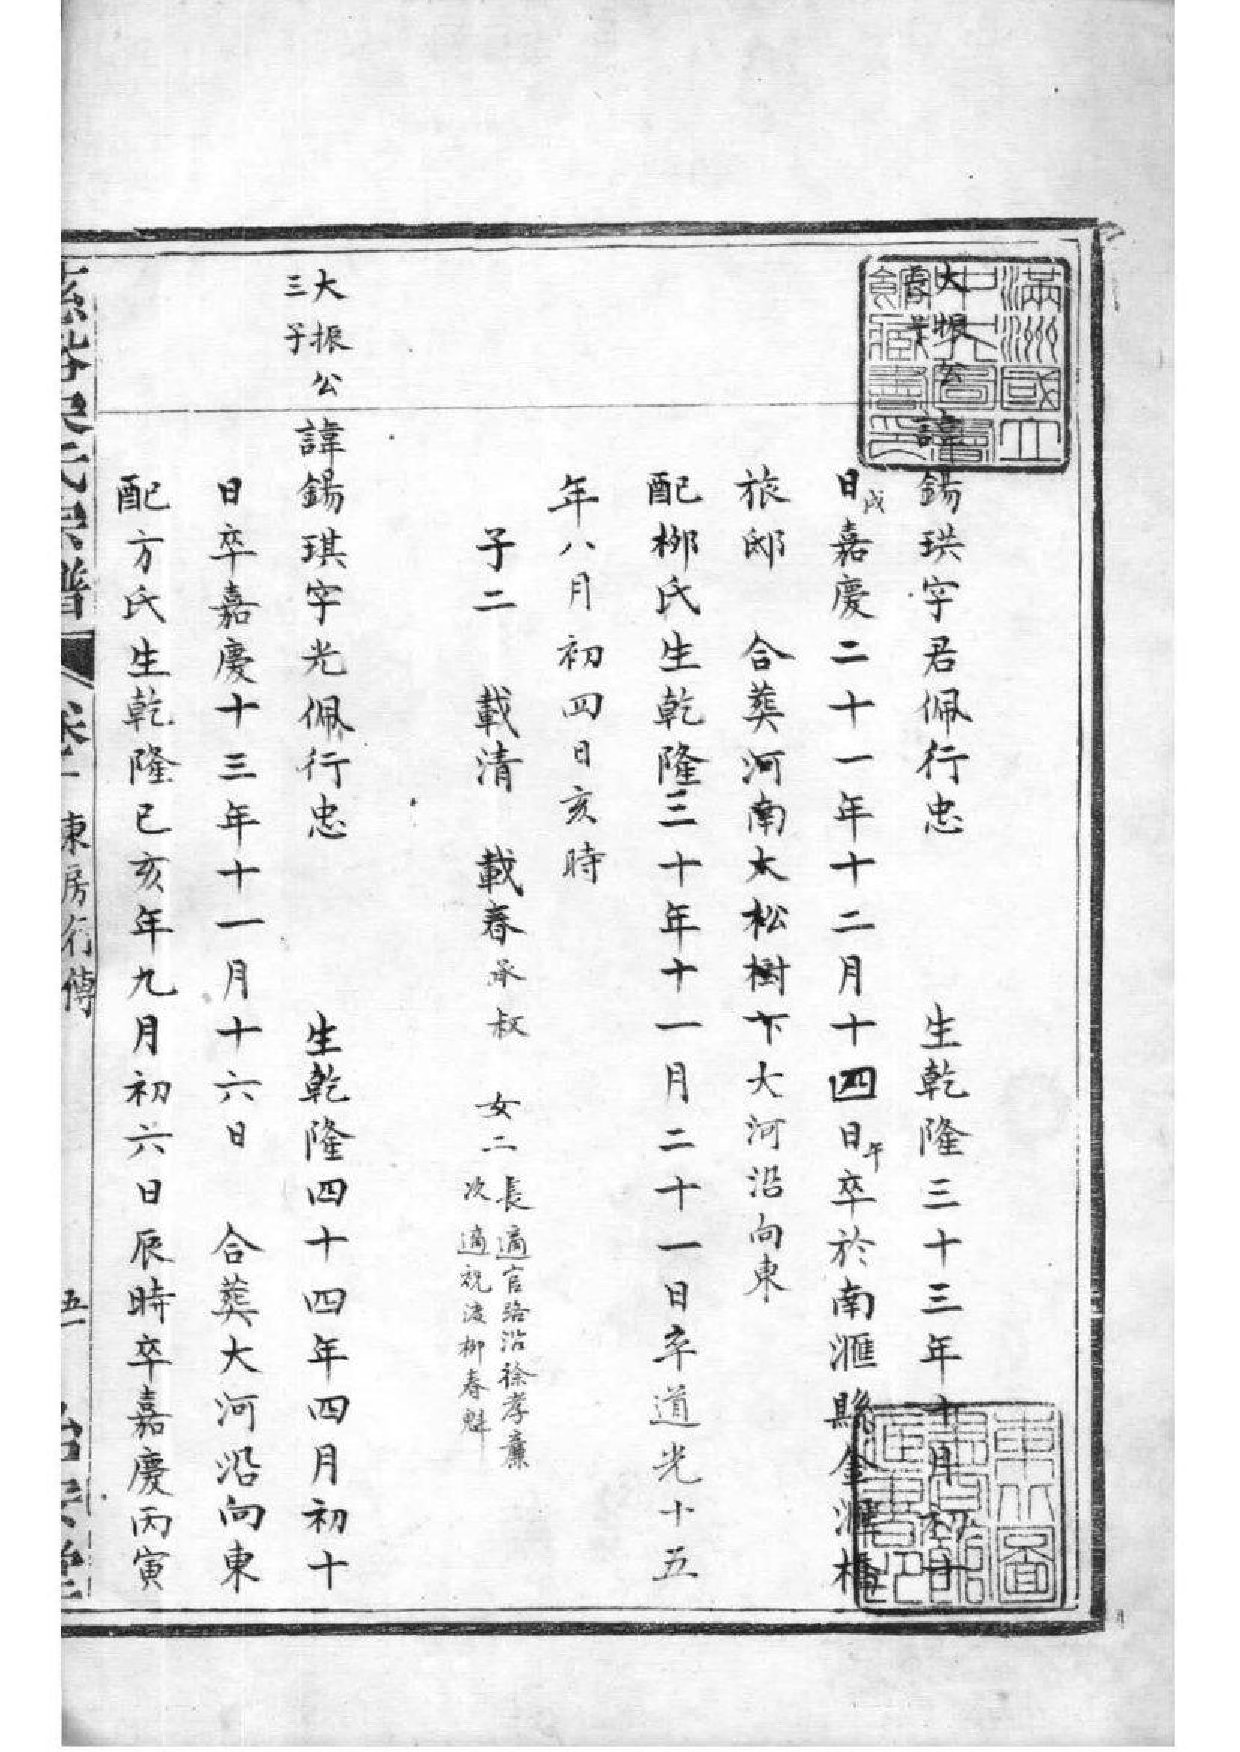 滿洲國立
中央圖書
館籌備處
大振公
諱錫珙字君佩行忠 生乾隆三十三年十月初十
日戌嘉慶二十一年十二月十四日午卒於南滙縣金滙橋
旅邸 合葬河南大松樹下大河沿向東
配柳氏生乾隆三十年十一月二十一日卒道光十五
年八月初四日亥時
子二 載清 載春承叔 女二長適官路沿徐孝廉
次適祝渡柳春魁
大振公
三子
諱錫琪字光佩行忠 生乾隆四十四年四月初十
日卒嘉慶十三年十一月十六日 合葬大河沿向東
配方氏生乾隆己亥年九月初六日辰時卒嘉慶丙寅
氏宗譜 卷一 東房行傳 五
東北圖
書館藏書印